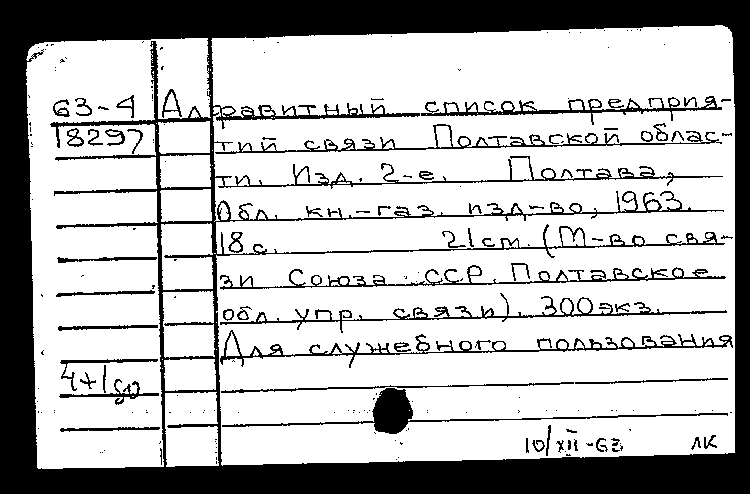 63-4 Алфавитный список предприя-
18297 тий связи Полтавской облас-
ти. Изд. 2-е. Полтава,
Обл. кн.-газ. изд-во, 1963.
18с. 21см. (М-во свя-
зи Союза ССР. Полтавское
обл. упр. связи). 300экз.
Для служебного пользования
4+1
10/XII-63 ЛК